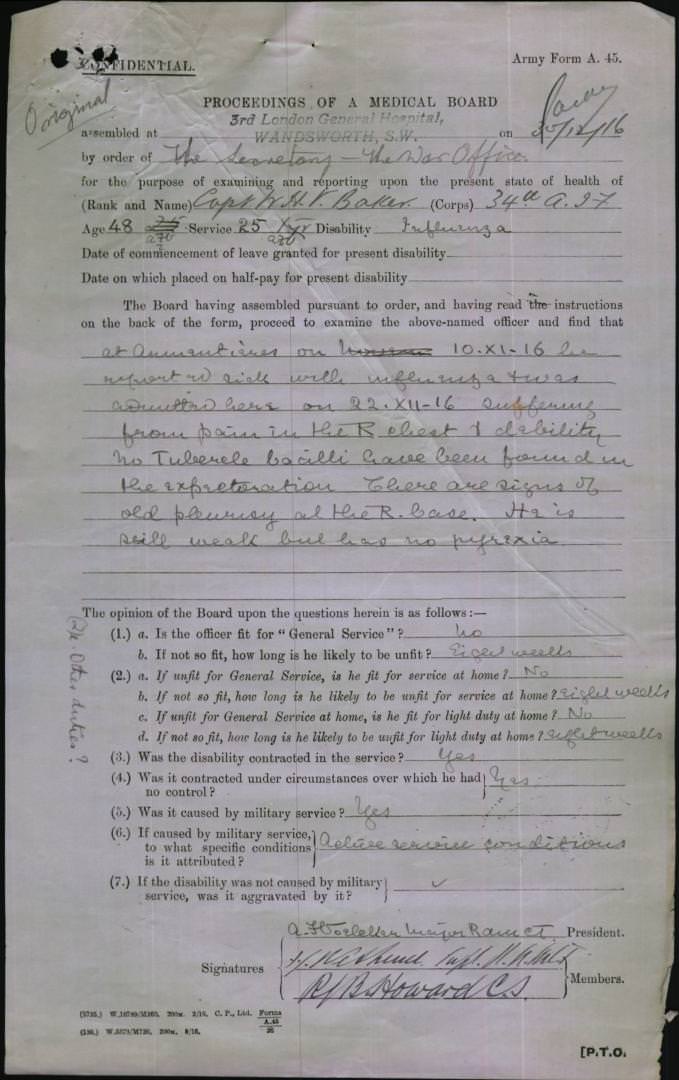 CONFIDENTIAL.
Army Form A. 45.
Original
PROCEEDINGS OF A MEDICAL BOARD
3rd London General Hospital,
assembled at WANDSWORTH, S.W. on 30/12/16
by order of The Secretary — The War Office
for the purpose of examining and reporting upon the present state of health of
(Rank and Name) Capt W. H. V. Baker. (Corps) 34th A.
Age 48 Service 25 Disability Influenza
Date of commencement of leave granted for present disability
Date on which placed on half-pay for present disability
The Board having assembled pursuant to order, and having read the instructions
on the back of the form, proceed to examine the above-named officer and find that
at Armentieres on 10.XI-16 he
reported sick with influenza & was
admitted here on 22.XII-16 suffering
from pain in the R. chest & debility
No Tubercle bacilli have been found in
the expectoration There are signs of
old pleurisy at the R. base. He is
still weak but has no pyrexia
The opinion of the Board upon the questions herein is as follows:—
(1.) a. Is the officer fit for "General Service"? No
b. If not so fit, how long is he likely to be unfit? Eight weeks
(2.) a. If unfit for General Service, is he fit for service at home? No
b. If not so fit, how long is he likely to be unfit for service at home? eight weeks
c. If unfit for General Service at home, is he fit for light duty at home? No
d. If not so fit, how long is he likely to be unfit for light duty at home? eight weeks
Other duties?
(3.) Was the disability contracted in the service? Yes
(4.) Was it contracted under circumstances over which he had no control? Yes
(5.) Was it caused by military service? Yes
(6.) If caused by military service,
to what specific conditions Active service conditions
is it attributed?
(7.) If the disability was not caused by military
service, was it aggravated by it? ✓
Major President.
Signatures
Capt.
Howard Members.
(3735.) W.16789/M260. 200m. 2/16. C. P., Ltd. Forms A.45 26
200m. 8/16.
[P.T.O.